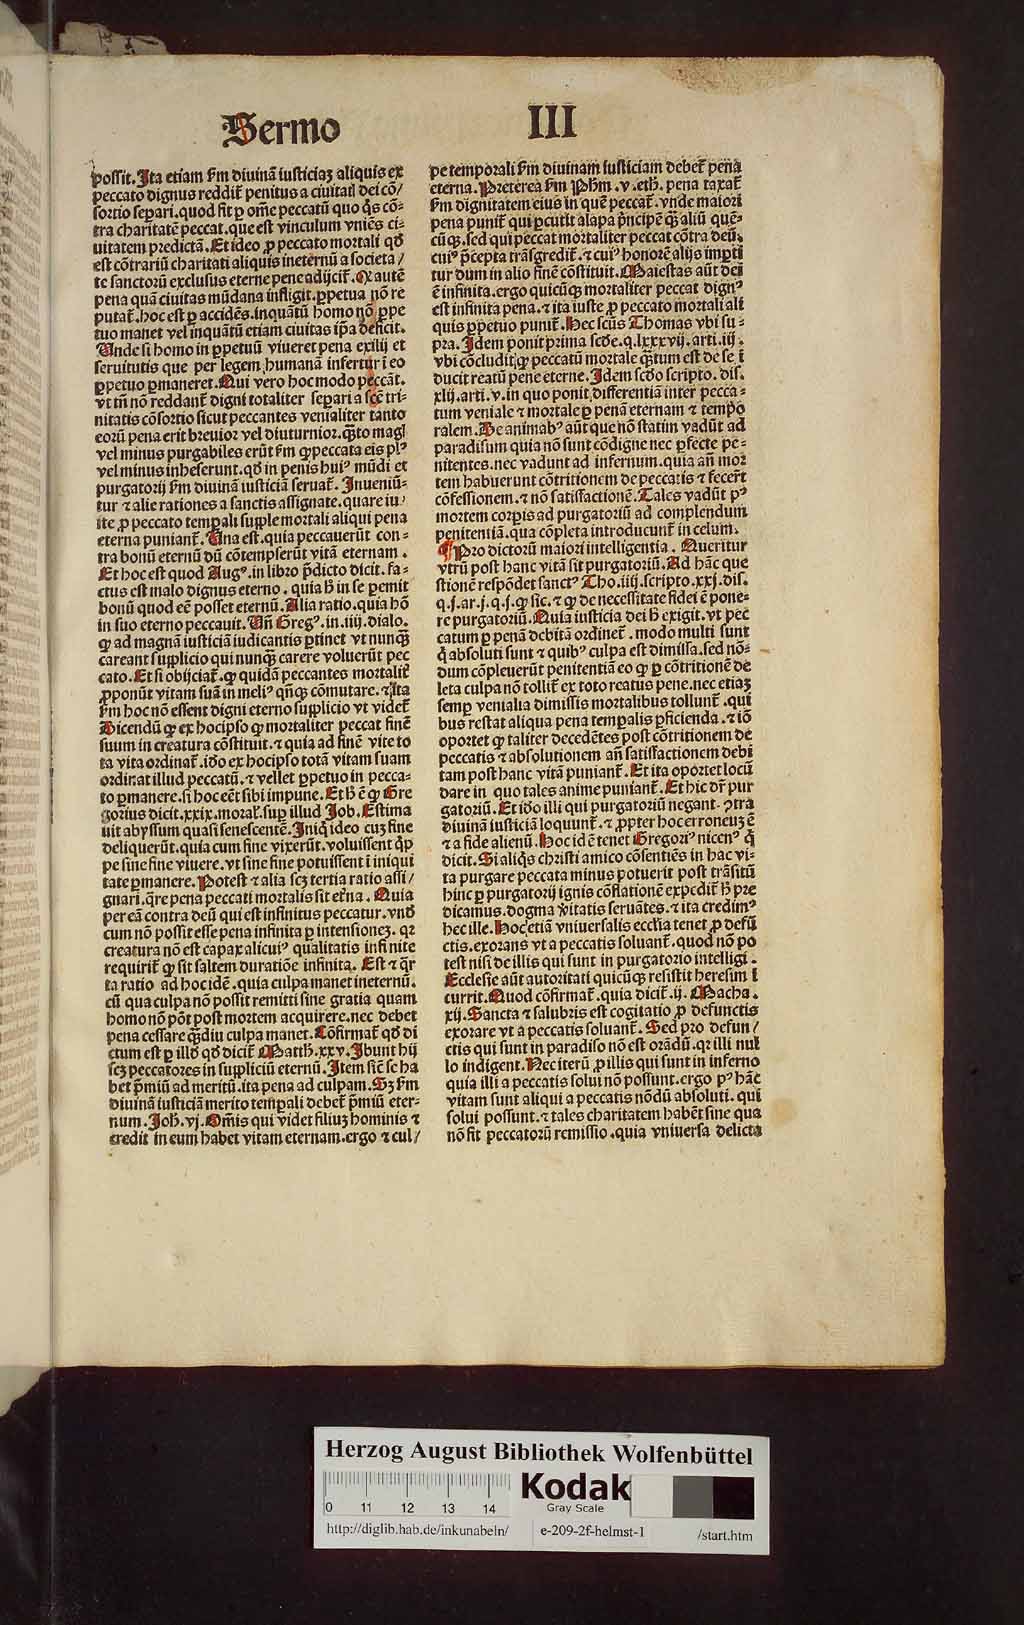 Sermo III
possit. Ita etiam s̃m diuinã iusticiaz aliquis ex
peccato dignus reddit̃ penitus a ciuitati dei cõ/
sortio sep̲ari. quod fit p̲ om̃e peccatũ quo q̃s cõ-
tra charitatẽ peccat. que est vinculum vniẽs ci-
uitatem predictã. Et ideo p̲ peccato mortali qđ
est cõtrariũ charitati aliquis ineternũ a societa/
te sanctorũ exclusus eterne pene adijcit̃. Q autẽ
pena quã ciuitas mũdana infligit. p̲petua nõ re
putat̃. hoc est p̲ accidẽs. inquãtũ homo nõ p̲pe
tuo manet vel inquãtũ etiam ciuitas ip̃a deficit.
Unde si homo in p̲petuũ viueret pena exilij et
seruitutis que per legem humanã infertur ĩ eo
p̲petuo p̲maneret. Qui vero hoc modo peccãt.
vt tñ nõ reddant̃ digni totaliter sep̲ari a scẽ tri-
nitatis cõsortio sicut peccantes venialiter tanto
eorũ pena erit breuior vel diuturnior. q̃to magꝭ
vel minus purgabiles erũt s̃m ꝙ peccata eis plꝰ
vel minus inheserunt. qđ in penis huiꝰ mũdi et
purgatorij s̃m diuinã iusticiã seruat̃. Inueniũ-
tur ⁊ alie rationes a sanctis assignate. quare iu/
ste p̲ peccato temp̲ali supple mortali aliqui pena
eterna puniant̃. Una est. quia peccauerũt con-
tra bonũ eternũ dũ cõtempserũt vitã eternam.
Et hoc est quod Augꝰ. in libro p̃dicto dicit. fa-
ctus est malo dignus eterno. quia ꝧ in se pemit
bonũ quod eẽ posset eternũ. Alia ratio. quia hõ
in suo eterno peccauit. Uñ Gregꝰ. in. iiij. dialo.
ꝙ ad magnã iusticiã iudicantis p̲tinet vt nunqꝫ
careant supplicio qui nunqꝫ carere voluerũt pec
cato. Et si obijciat̃. ꝙ quidã peccantes mortalit̃
p̲ponũt vitam suã in meliꝰ qñqꝫ cõmutare. ⁊ ita
s̃m hoc nõ essent digni eterno supplicio vt videt̃
Dicendũ ꝙ ex hocipso ꝙ mortaliter peccat finẽ
suum in creatura cõstituit. ⁊ quia ad finẽ vite to
ta vita ordinat̃. ido ex hocipso totã vitam suam
ordinat illud peccatũ. ⁊ vellet p̲petuo in pecca-
to p̲manere. si hoc eẽt sibi impune. Et ꝧ ẽ ꝙ Gre
gorius dicit. xxix. moral̃. sup illud Job. Estima
uit abyssum quasi senescentẽ. Iniq̃ ideo cuz fine
deliquerũt. quia cum fine vixerũt. voluissent q̃p
pe sine fine viuere. vt sine fine potuissent ĩ iniqui
tate p̲manere. Potest ⁊ alia scꝫ tertia ratio assi/
gnari. q̃re pena peccati mortalis sit et̃na. Quia
per eã contra deũ qui est infinitus peccatur. vnđ
cum nõ possit esse pena infinita p̲ intensionez. qꝛ
creatura nõ est capax alicuiꝰ qualitatis infinite
requirit̃ ꝙ sit saltem duratiõe infinita. Est ⁊ q̃r
ta ratio ad hoc idẽ. quia culpa manet ineternũ.
cũ qua culpa nõ possit remitti sine gratia quam
homo nõ põt post mortem acquirere. nec debet
pena cessare q̃diu culpa manet. Cõfirmat̃ qđ di
ctum est p̲ illđ qđ dicit̃ Matth. xxv. Ibunt hij
scꝫ peccatores in suppliciũ eternũ. Item sic̃ se ha
bet p̃miũ ad meritũ. ita pena ad culpam. Sꝫ s̃m
diuinã iusticiã merito temp̲ali debet̃ p̃miũ eter-
num. Joh. vj. Om̃is qui videt filiuz hominis ⁊
credit in eum habet vitam eternam. ergo ⁊ cul/
pe temporali s̃m diuinam iusticiam debet̃ pena
eterna. Preterea s̃m Ph̃m. v. eth. pena taxat̃
s̃m dignitatem eius in quẽ peccat̃. vnde maiori
pena punit̃ qui p̲cutit alapa p̃ncipẽ qꝫ aliũ quẽ-
cũqꝫ. sed qui peccat mortaliter peccat cõtra deũ.
cuiꝰ p̃cepta trãsgredit̃. ⁊ cuiꝰ honorẽ alijs imp̲ti
tur dum in alio finẽ cõstituit. Maiestas aũt dei
ẽ infinita. ergo quicũqꝫ mortaliter peccat dignꝰ
est infinita pena. ⁊ ita iuste p̲ peccato mortali ali
quis p̲petuo punit̃. Hec scũs Thomas vbi su-
pra. Idem ponit prima scđe. q. lxxxvij. arti. iij.
vbi cõcludit ꝙ peccatũ mortale q̃tum est de se ĩ
ducit reatũ pene eterne. Idem scđo scripto. dis.
xlij. arti. v. in quo ponit differentiã inter pecca-
tum veniale ⁊ mortale p̲ penã eternam ⁊ tempo
ralem. De animabꝰ aũt que nõ statim vadũt ad
paradisum quia nõ sunt cõdigne nec p̲fecte pe-
nitentes. nec vadunt ad infernum. quia añ mor
tem habuerunt cõtritionem de peccatis ⁊ fecer̃t
cõfessionem. ⁊ nõ satisfactionẽ. Tales vadũt pꝰ
mortem corp̲is ad purgatoriũ ad complendum
penitentiã. qua cõpleta introducunt̃ in celum.
¶ Pro dictorũ maiori intelligentia. Queritur
vtrũ post hanc vitã sit purgatoriũ. Ad hãc que
stionẽ respõdet sanctꝰ Tho. iiij. scripto. xxj. dis.
q. j. ar. j. q. j. ꝙ sic. ⁊ ꝙ de necessitate fidei ẽ pone-
re purgatoriũ. Quia iusticia dei ꝧ exigit. vt pec
catum p̲ penã debitã ordinet̃. modo multi sunt
q̃ absoluti sunt ⁊ quibꝰ culpa est dimissa. sed nõ-
dum cõpleuerũt penitentiã eo ꝙ p̲ cõtritionẽ de
leta culpa nõ tollit̃ ex toto reatus pene. nec etiaꝫ
semp̲ venialia dimissis mortalibus tollunt̃. qui
bus restat aliqua pena temp̲alis p̲ficienda. ⁊ iõ
oportet ꝙ taliter decedẽtes post cõtritionem de
peccatis ⁊ absolutionem añ satisfactionem debi
tam post hanc vitã puniant̃. Et ita oportet locũ
dare in quo tales anime puniant̃. Et hic dr̃ pur
gatoriũ. Et iđo illi qui purgatoriũ negant. ꝯtra
diuinã iusticiã loquunt̃. ⁊ p̲pter hoc erroneuꝫ ẽ
⁊ a fide alienũ. Hoc idẽ tenet Gregoriꝰ nicenꝰ q̃
dicit. Si aliq̃s christi amico cõsentiẽs in hac vi-
ta purgare peccata minus potuerit post trãsitũ
hinc p̲ purgatorij ignis cõflationẽ expedit̃ ꝧ pre
dicamus. dogma ṽitatis seruãtes. ⁊ ita credimꝰ
hec ille. Hoc etiã vniuersalis ecclĩa tenet p̲ defũ
ctis. exorans vt a peccatis soluant̃. quod nõ po
test nisi de illis qui sunt in purgatorio intelligi.
Ecclesie aũt autoritati quicũqꝫ resistit heresim ĩ
currit. Quod cõfirmat̃. quia dicit̃. ij. Macha.
xij. Sancta ⁊ salubris est cogitatio p̲ defunctis
exorare vt a peccatis soluant̃. Sed pro defun/
ctis qui sunt in paradiso nõ est orãdũ. qꝛ illi nul
lo indigent. Nec iterũ p̲ illis qui sunt in inferno
quia illi a peccatis solui nõ possunt. ergo pꝰ hãc
vitam sunt aliqui a peccatis nõdũ absoluti. qui
solui possunt. ⁊ tales charitatem habẽt sine qua
nõ fit peccatorũ remissio. quia vniuersa delicta
Herzog August Bibliothek Wolfenbüttel
0 11 12 13 14
Kodak
Gray Scale
http://diglib.hab.de/inkunabeln/ e-209-2f-helmst-1 /start.htm